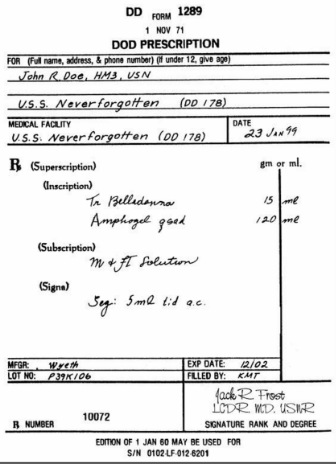 DD FORM 1289
1 NOV 71
DOD PRESCRIPTION
FOR (Full name, address, & phone number) (If under 12, give age)
John R. Doe, HM3, USN
U.S.S. Neverforgotten (DD 178)
MEDICAL FACILITY
U.S.S. Neverforgotten (DD 178)
DATE
23 JAN 99
℞ (Superscription)
gm or ml.
(Inscription)
Tr Belladonna 15 ml
Amphogel qsad 120 ml
(Subscription)
M & FT Solution
(Signa)
Sig: 5ml tid a.c.
MFGR: Wyeth
EXP DATE: 12/02
LOT NO: P39K106
FILLED BY: KMT
Jack R. Frost
LCDR M.D. USNR
℞ NUMBER 10072
SIGNATURE RANK AND DEGREE
EDITION OF 1 JAN 60 MAY BE USED FOR
S/N 0102-LF-012-6201